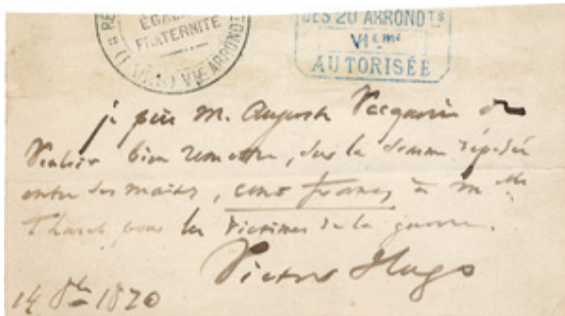 RÉ
ÉGAL
FRATERNITÉ
VIE ARRONDT
DES 20 ARRONDTS
VIeme
AUTORISÉE
je prie M. Auguste Vacquerie de
vouloir bien remettre, sur la somme déposée
entre ses mains, cinq francs à Melle
pour les victimes de la guerre.
Victor Hugo
14 8bre 1870